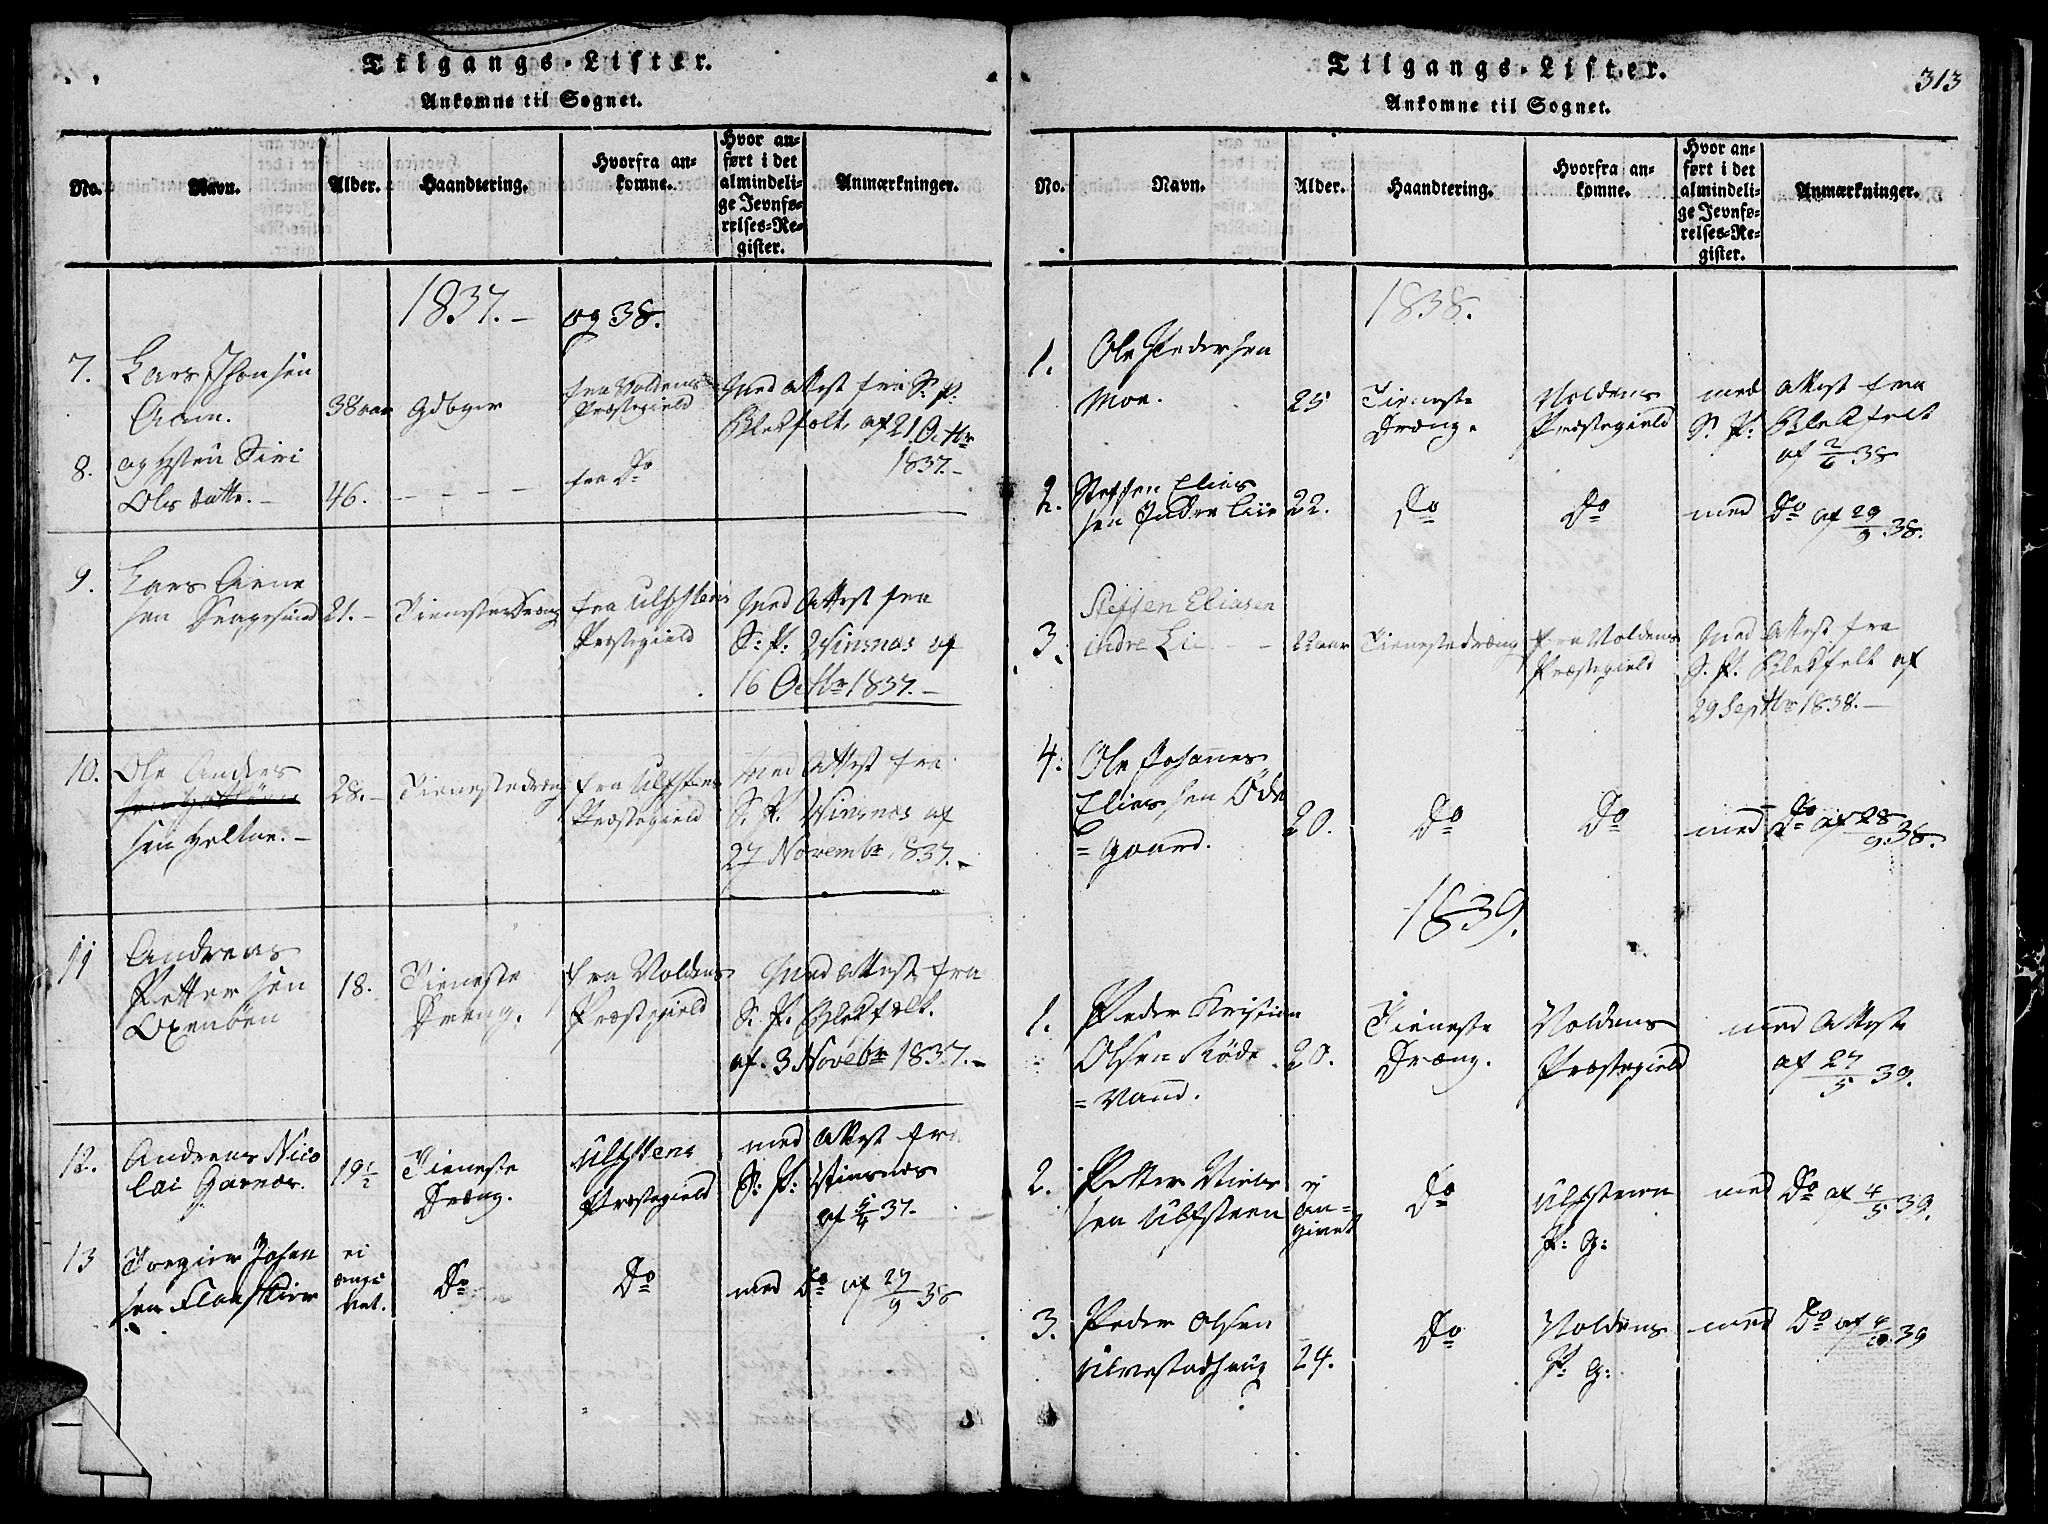 Tilgangs-Lister.
Ankomne til Sognet.
No.
Navn.
Alder.
Haandtering.
Hvorfra an-
komne.
Hvor an-
ført i det
almindeli-
ge Jevnfø-
relses-Re-
gister.
Anmærkninger.
1837.- og 38.
7. Lars Jhonsen
Aam. 38 aar Gdbger fra Voldens Præstegield Med Attest fra S. P.
Blekfelt, af 21 Octbr
1837.-
8. og Hstru Siri
Ols datter.- 46. - - - - fra Do
9. Lars Arne
sen 21.- Tienestedreng fra Ulfstens Præstegield Med Attest fra
S: P. Winsnæs af
16 Octbr 1837.-
10. Ole Anders
sen 28.- Tienestedreng fra Ulfstens Præstegield Med Attest fra
S. P. Winsnæs af
27 Novembr 1837.-
11 Andreas
Petter sen
Oxenöen 18. Tieneste
Dreng. fra Voldens
Præstegield Med Attest fra
S. P. Blekfelt.
af. 3 Novebr 1837.-
12. Andreas Nico
lai Garnæs. 19 1/2 Tieneste
Dræng. Ulfstens
Præstegield med Attest fra
S: P: Vinsnæs
af 37.
13 Johan
sen ei
angi
vet. Do Do med Do af 27/9 38
Tilgangs-Lister.
313
Ankomne til Sognet.
No.
Navn.
Alder.
Haandtering.
Hvorfra an-
komne.
Hvor an-
ført i det
almindeli-
ge Jevnfø-
relses-Re-
gister.
Anmærkninger.
1838.
1. Ole Pedersen
Moe. 25 Tieneste
Dræng. Voldens
Præstegield med Attest fra
S. P: Blekfelt
af 2/6 38
2. Steffen Elias
sen Indre Lie 22. Do Do med Do af 29/9 38.
3. Steffen Eliasen
indre Lie. - - 22 aar Tienestedræng fra Voldens
Præstegield Med Attest fra
S. P. Blekfelt af
29 Septbr 1838.-
4. Ole Johannes
Elias sen Öde
= gaard. 20. Do Do med Do af 28/9 38.
1839.
1. Peder Kristian
Olsen Röde
= Vand. 20. Tieneste
Dræng. Voldens
Præstegield med Attest
af 27/5 39.
2. Petter Niels
sen Ulfsteen ej
an=
givet Do Ulfsteen
P: G: med Do af 4/5 39.
3. Peder Olsen
Ulvestadhaug 24. Do Voldens
P: G: med Do af 4/10 39